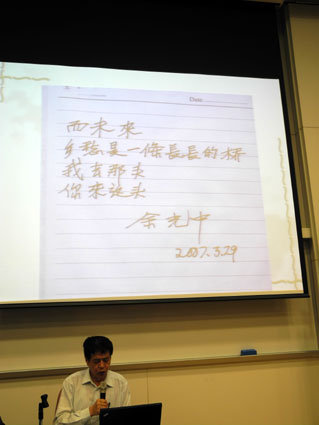 Date
而未來
乡愁是一條長長的桥
我去那头
你來这头
余光中
2007.3.29